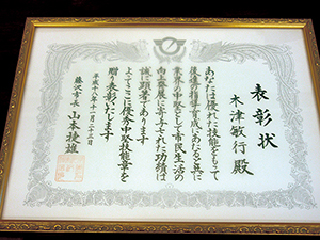 表彰状
木津敏行殿
あなたは優れた技能をもって
後進の指導育成にあたるとともに
業界の中堅として市民生活の
向上発展に寄与された功績は
誠に顕著であります
よってここに優秀中堅技能者を
贈り表彰いたします
平成十八年十一月二十三日
藤沢市長 山本捷雄